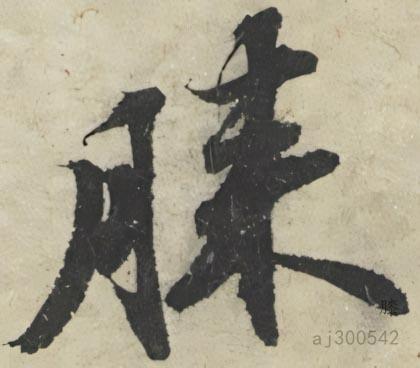 膝
膝
aj300542